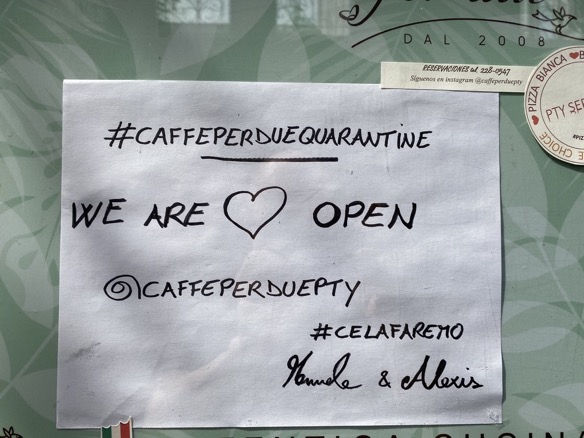 DAL 2008
RESERVACIONES al 228-0547
Siguenos en instagram @caffeperduepty
PIZZA BIANCA
PTY
CHOICE
#CAFFEPERDUEQUARANTINE
WE ARE ♡ OPEN
@CAFFEPERDUEPTY
#CELAFAREMO
Manuela & Alexis
CUCINA